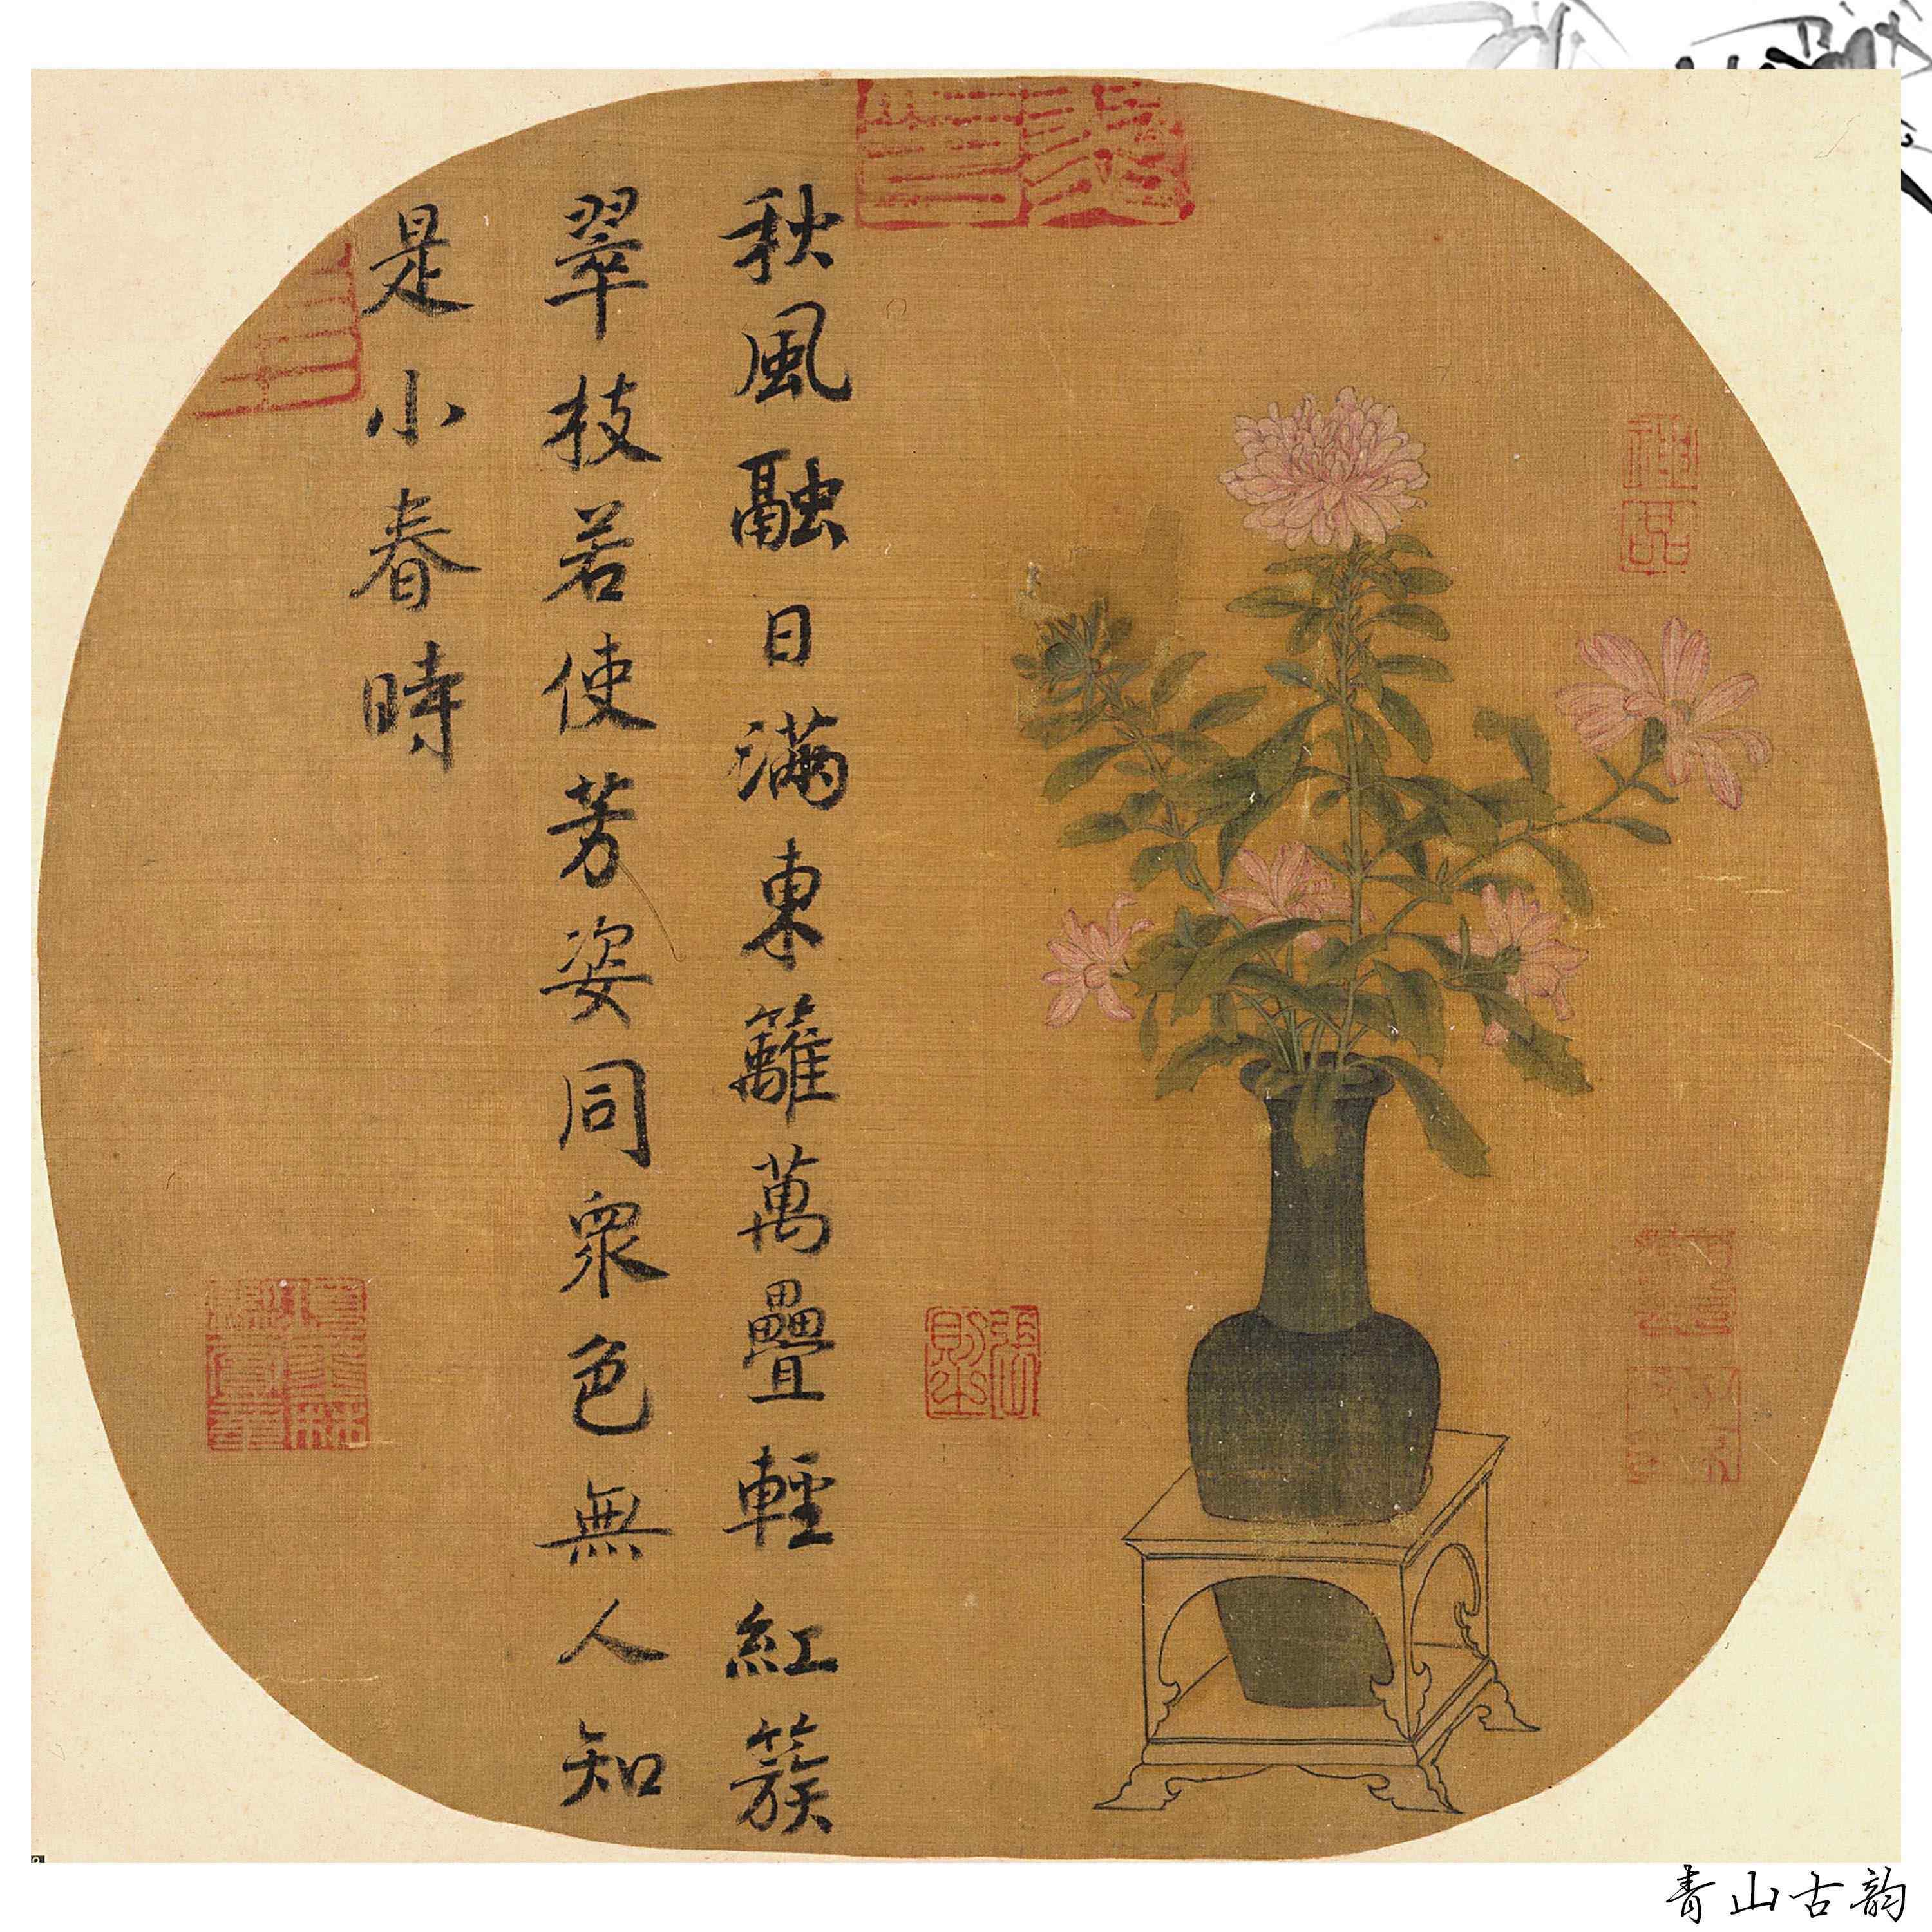 秋風融日滿東籬萬疊輕紅簇
翠枝若使芳姿同眾色無人知
是小春時
張則之
神品
青山古韵